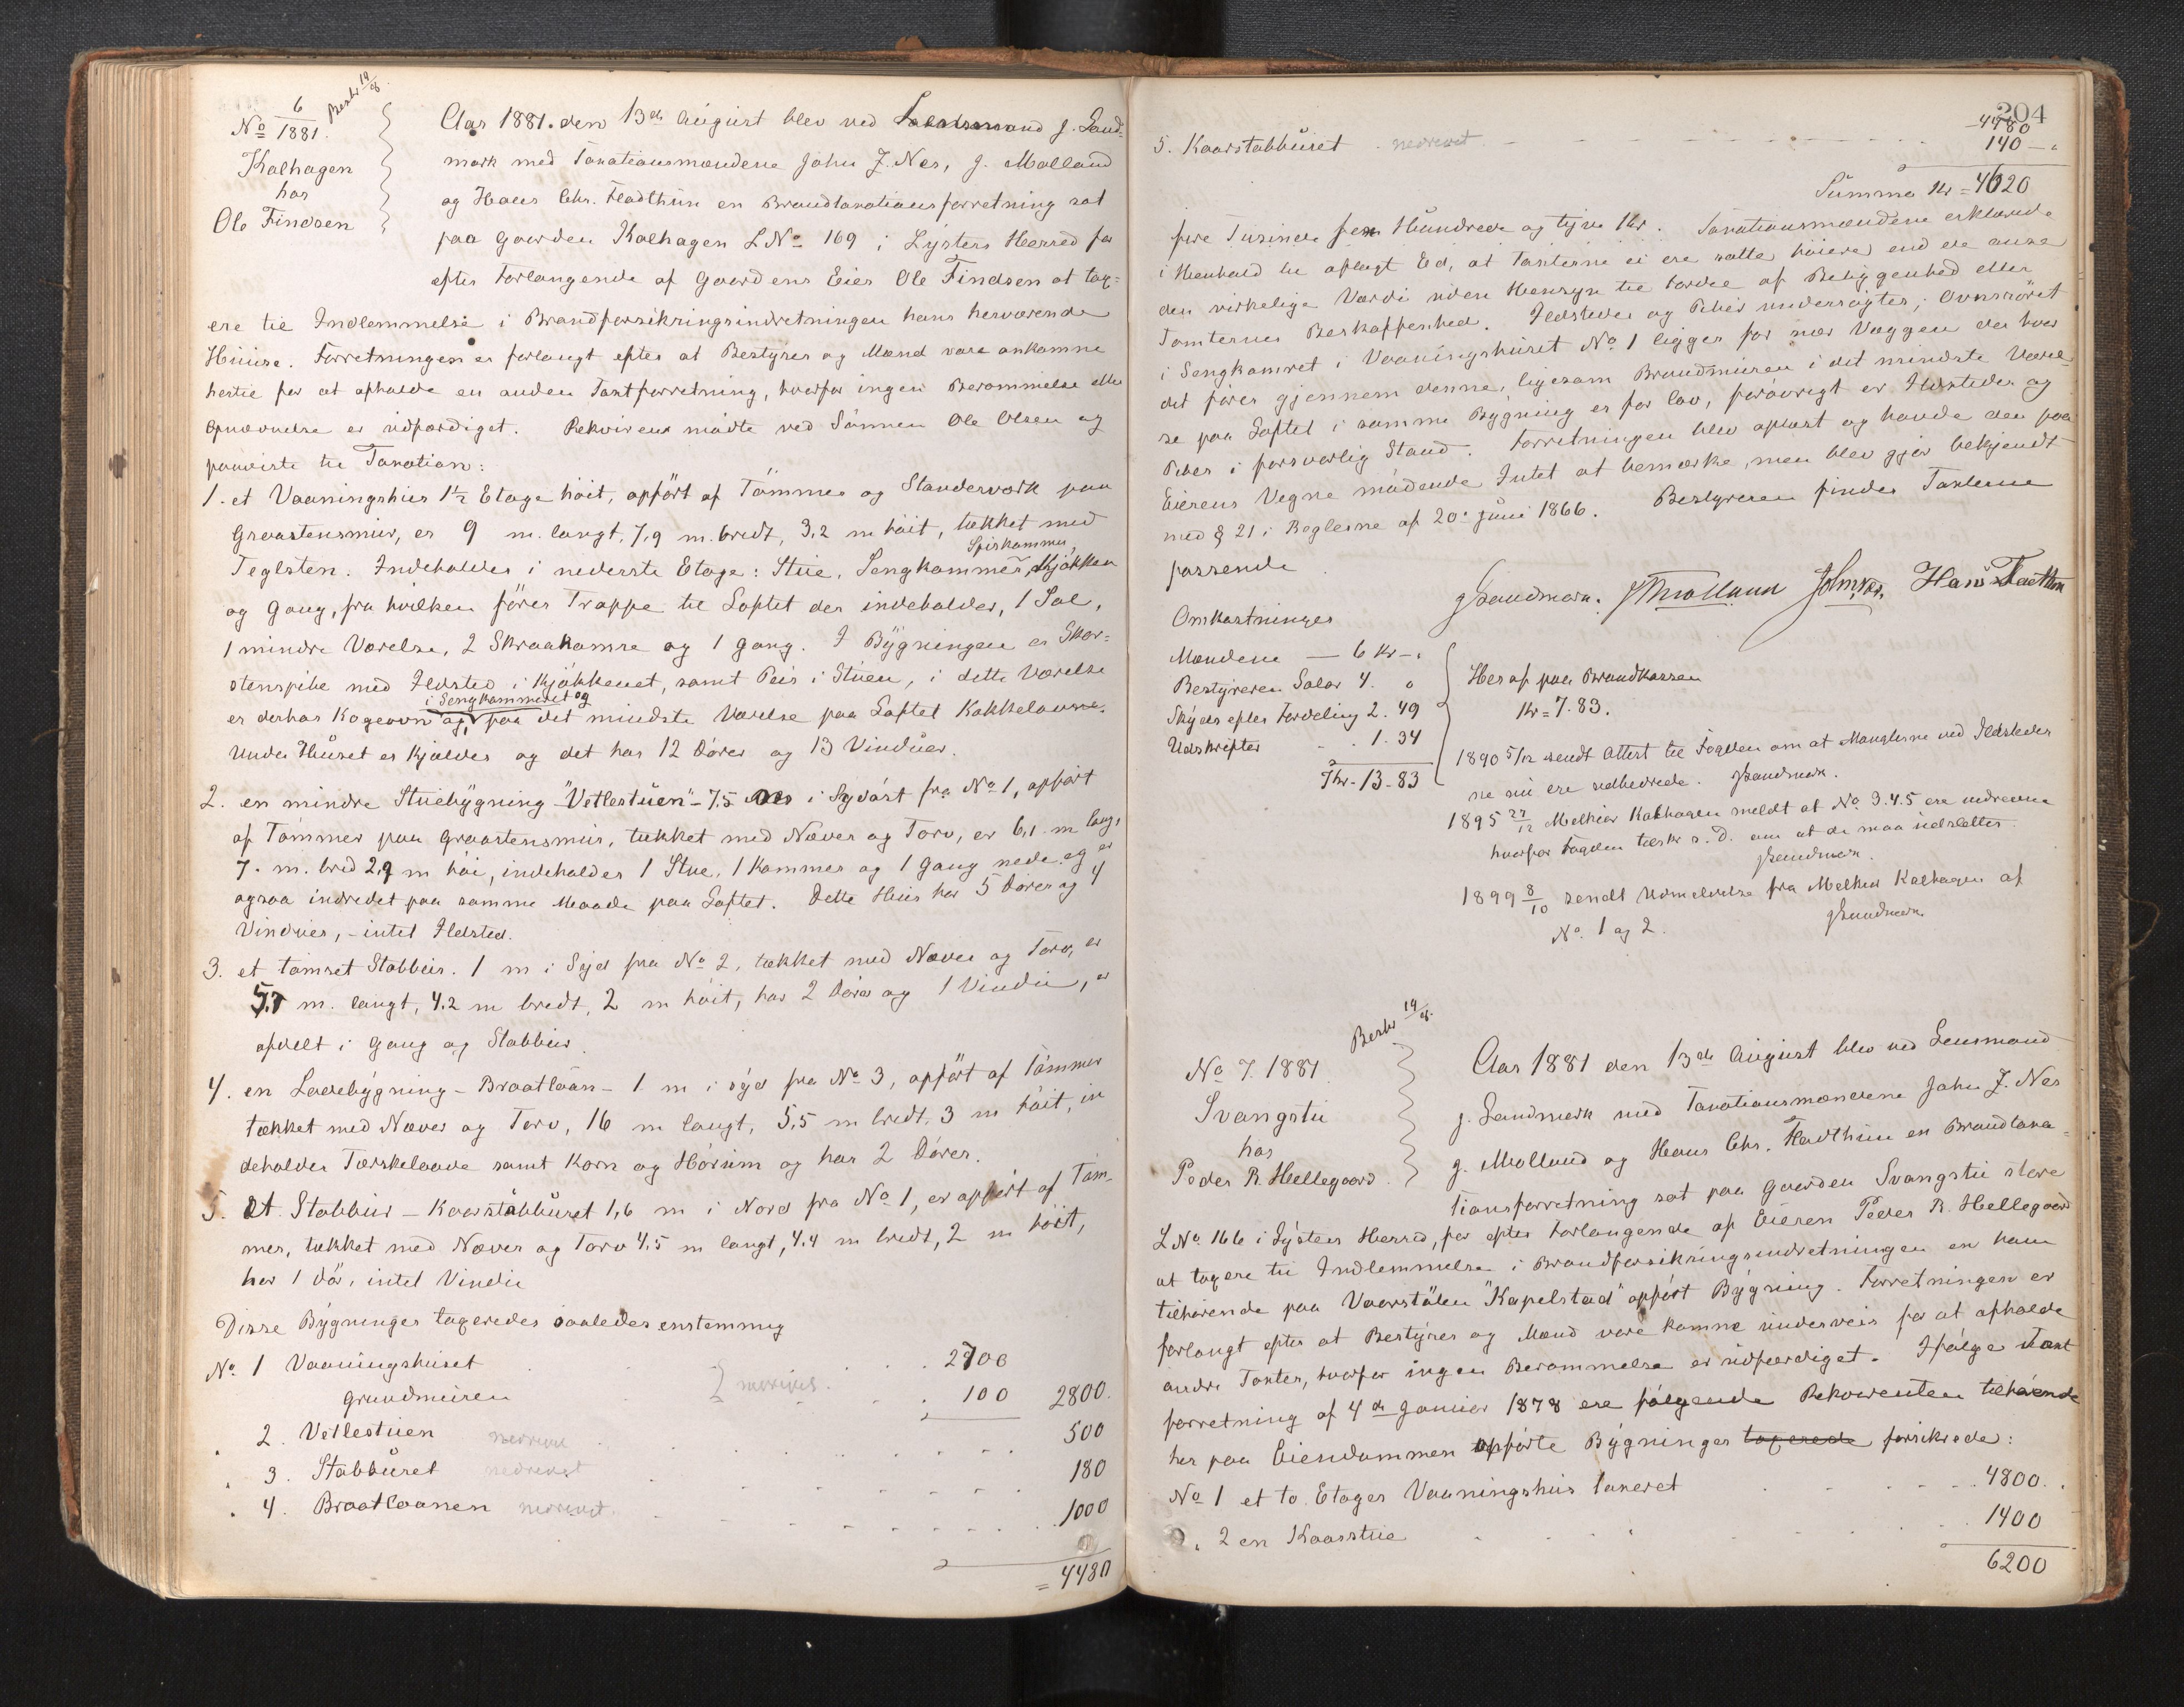 No 6/1881. Beskr 19/8.
Kalhagen
hos
Ole Findsen
Aar 1881. den 13de August blev ved Lensmand J. Sand=
mark med Taxationsmændene John J. Nes, J. Molland
og Hans Chr. Fladthun en Brandtaxationsforretning sat
paa Gaarden Kalhagen L No 169 i Lysters Herred for
efter Forlangende af Gaardens Eier Ole Findsen at tax=
ere til Indlemmelse i Brandforsikringsindretningen hans herværende
Huuse. Forretningen er forlangt efter at Bestyrer og Mænd vare ankomne
hertil for at afholde en anden Taxtforretning, hvorfor ingen Berammelse eller
Opnævnelse er udfærdiget. Rekvirent mødte ved Sønnen Ole Olsen og
paaviste til Taxation:
1. et Vaaningshus 1½ Etage høit, opført af Tømmer og Standerværk paa
Graastensmur, er 9 m. langt, 7,9 m. bredt, 3,2 m høit, tækket med
Teglsten. Indeholder i nederste Etage: Stue, Sengkammer, Spiskammer, Kjøkken
og Gang, fra hvilken fører Trappe til Loftet der indeholder, 1 Sal,
1 mindre Værelse, 2 Skraakamre og 1 Gang. I Bygningen er Skor=
stenspibe med Ildsted i Kjøkkenet, samt Peis i Stuen, i dette Værelse
er derhos Kogeovn og i Sengkammeret og paa det mindste Værelse paa Loftet Kakkelovne.
Under Huset er Kjælder og det har 12 Døre og 13 Vinduer.
2. en mindre Stuebygning "Vetlestuen" 7.5 m i Sydøst fra No 1, opført
af Tømmer paa Graastensmur, tækket med Næver og Torv, er 6,1 m lang,
7. m. bred 2,9 m høi, indeholder 1 Stue, 1 Kammer og 1 Gang nede og er
ogsaa indredet paa samme Maade paa Loftet. Dette Huus har 5 Døre og 4
Vinduer, - intet Ildsted.
3. et tømret Stabbur. 1 m i Syd fra No 2, tækket med Næver og Torv, er
5,7 m. langt, 4.2 m bredt, 2 m høit, har 2 Døre og 1 Vindu, er
afdelt i Gang og Stabbur.
4. en Ladebygning - Braatlaan - 1 m i syd fra No 3, opført af Tømmer
tækket med Næver og Torv, 16 m langt, 5,5 m bredt, 3 m høit, in
deholder Tærskelaave samt Korn og Hørum og har 2 Døre.
5. et Stabbur - Kaarstabburet 1,6 m i Nord fra No 1, er opført af Tøm-
mer, tækket med Næver og Torv 4.5 m langt, 4,4 m bredt, 2 m høit,
har 1 Dør, intet Vindu
Disse Bygninger taxeredes saaledes enstemmig
No 1 Vaaningshuset 2700
Grundmuren nedrevet. 100 2800.
" 2. Vetlestuen nedrevet 500
" 3. Stabburet nedrevet 180
" 4. Braatlaanen nedrevet. 1000
= 4480
204
4480
5. Kaarstabburet nedrevet. 140 - "
Summa Kr = 4620
fire Tusinde sex Hundrede og tyve Kr. Taxationsmændene erklærede
i Henhold til aflagt Ed, at Taxterne ei ere satte høiere end de ansee
den virkelige Værdi uden Hensyn til Fordel af Beliggenhed eller
Tomternes Beskaffenhed. Ildsteder og Piber undersøgtes; Ovnsrøret
i Sengkamret i Vaaningshuset No 1 ligger for nær Væggen der hvor
det fører gjennem denne, ligesom Brandmuren i det mindste Værel-
se paa Loftet i samme Bygning er for lav, forøvrigt er Ildsteder og
Piber i forsvarlig Stand. Forretningen blev oplæst og havde den paa
Eierens Vegne mødende Intet at bemærke, men blev gjort bekjendt
med § 21 i Reglerne af 20 Juni 1866. Bestyreren finder Taxterne
passende
JSandmark. JMolland JohnNes. Hans Fladthun
Omkostninger
Mændene — 6 Kr - "
Bestyreren Salær 4. "
Skyds efter Fordeling 2. 49
Udskrifter 1. 34
Kr - 13 - 83
Heraf paa Brandkassen
Kr = 7. 83.
1890 5/12 sendt Attest til Fogden om at Manglerne ved Ildstede
ne nu ere udbedrede. JSandmark.
1895 27/12 Melkior Kalhagen meldt at No 3. 4. 5 ere nedrevne
hvorfor Fogden tilskr s. D. om at de maa udslettes
JSandmark.
1899 8/10 sendt Udmeldelse fra Melkior Kalhagen af
No. 1 og 2. JSandmark
No 7. 1881 Beskr 19/8.
Svangstu
hos
Peder R. Hellegaard.
Aar 1881 den 13de August blev ved Lensmand
J. Sandmark med Taxationsmændene John J. Nes
J. Molland og Hans Chr. Fladthun en Brandtaxa=
tionsforretning sat paa Gaarden Svangstu store
L No. 166 i Lysters Herred, for efter Forlangende af Eieren Peder R. Hellegaard
at taxere til Indlemmelse i Brandforsikringsindretningen en ham
tilhørende paa Vaarstølen "Kapelstad" opført Bygning. Forretningen er
forlangt efter at Bestyrer og Mænd vare komne underveis for at afholde
andre Taxter, hvorfor ingen Berammelse er udfærdiget. Ifølge Taxt
forretning af 4de Januar 1878 ere følgende Rekvirenten tilhørende
her paa Eiendommen opførte Bygninger taxerede forsikrede:
No 1 et to Etages Vaaningshus taxeret 4800.
" 2 en Kaarstue 1400
6200